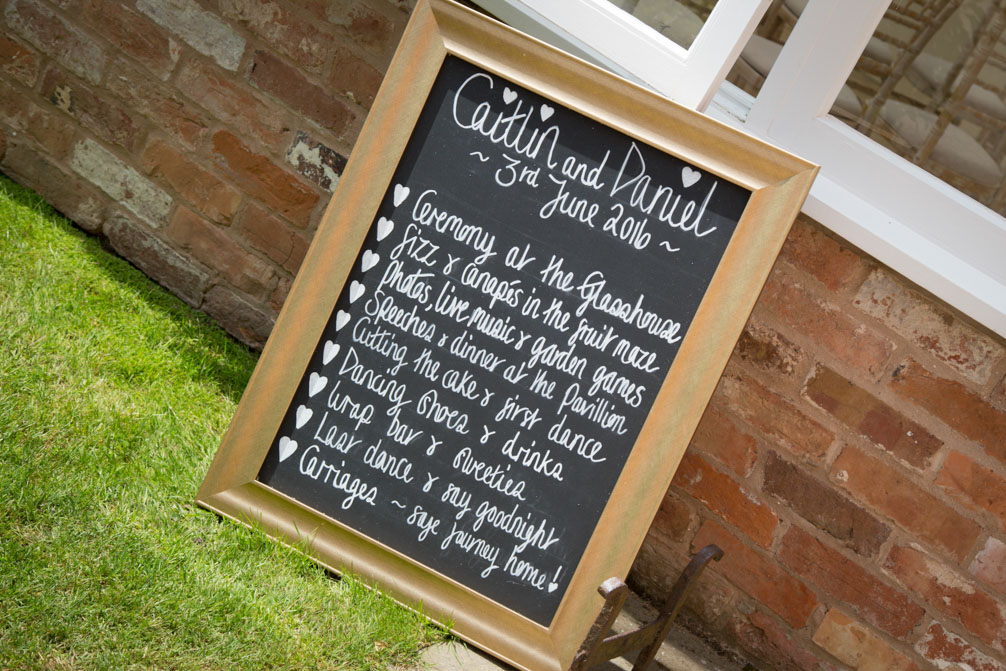 Caitlin and Daniel
~ 3rd June 2016 ~
Ceremony at the Glasshouse
fizz & canapés in the fruit maze
photos, live music & garden games
Speeches & dinner at the Pavillion
Cutting the cake & first dance
Dancing shoes & drinks
Wrap bar & sweeties
Last dance & say goodnight
Carriages ~ safe journey home!